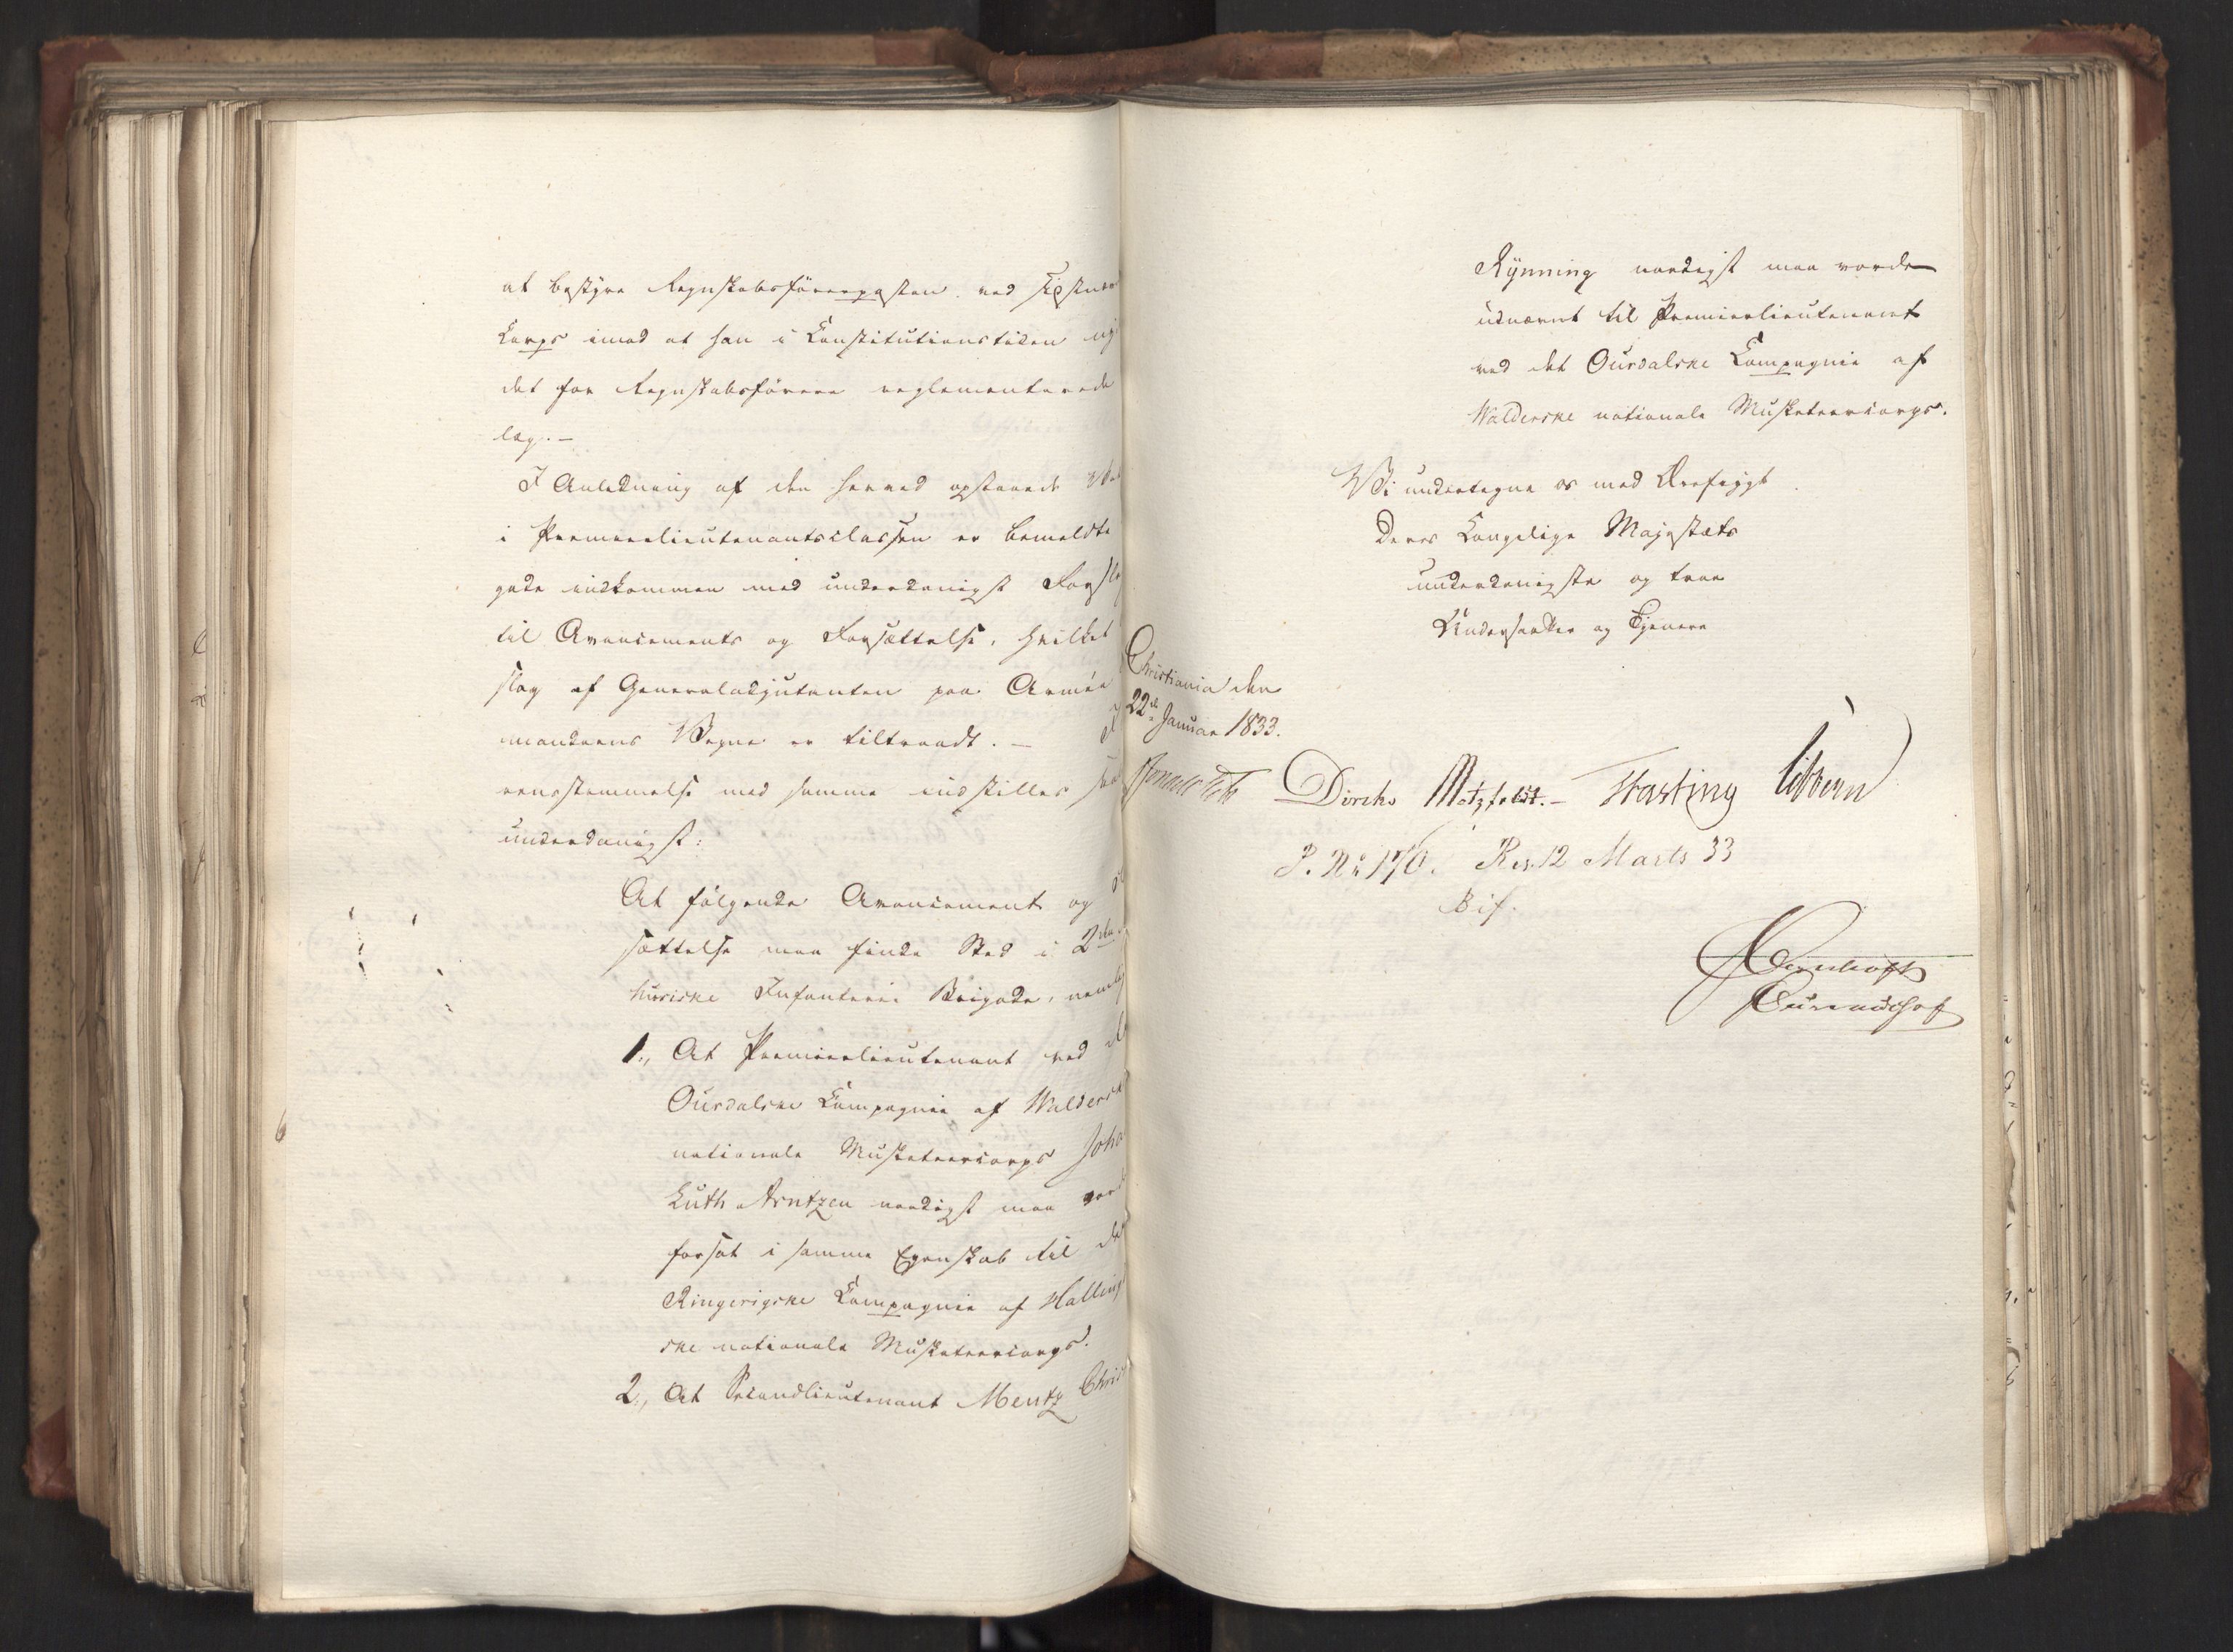 at bestyre Regnskabsførerposten ved
Corps imod at han i Constitutionstiden
det for Regnskabsførere reglementerede
læg. —
I Anledning af den herved opstaaede
i Premierlieutenantsclassen er bemeldte
gade indkommen med underdanigst Forsl
til Avancements og Forsættelse, hvilket
slag af Generaladjutanten paa Armée
mandoens Vegne er tiltraadt. —
eensstemmelse med samme indstilles
underdanigst:
At følgende Avancement og
sættelse maa finde Sted i 2den
husiske Infanterie Brigade, nemlig
1., At Premierlieutenant ved
Ourdalske Compagnie af Walders
nationale Musketeercorps Joha
Luth Arntzen naadigst maa vord
forsat i samme Egenskab til det
Ringerigske Compagnie af Halling
ske nationale Musketeercorps.
2., At Secondlieutenant Mentz Chris
Rynning naadigst maa vorde
udnævnt til Premierlieutenant
ved det Ourdalske Compagnie af
Walderske nationale Musketeercorps.
Vi undertegne os med Ærefrygt
Deres Kongelige Majestæts
underdanigste og troe
Undersaatter og Tjenere
Christiania den
22de Januar 1833.
Diriks Motzfeldt. — Fasting Sibbern
P. No 170. Res. 12 Marts 33
Bif.